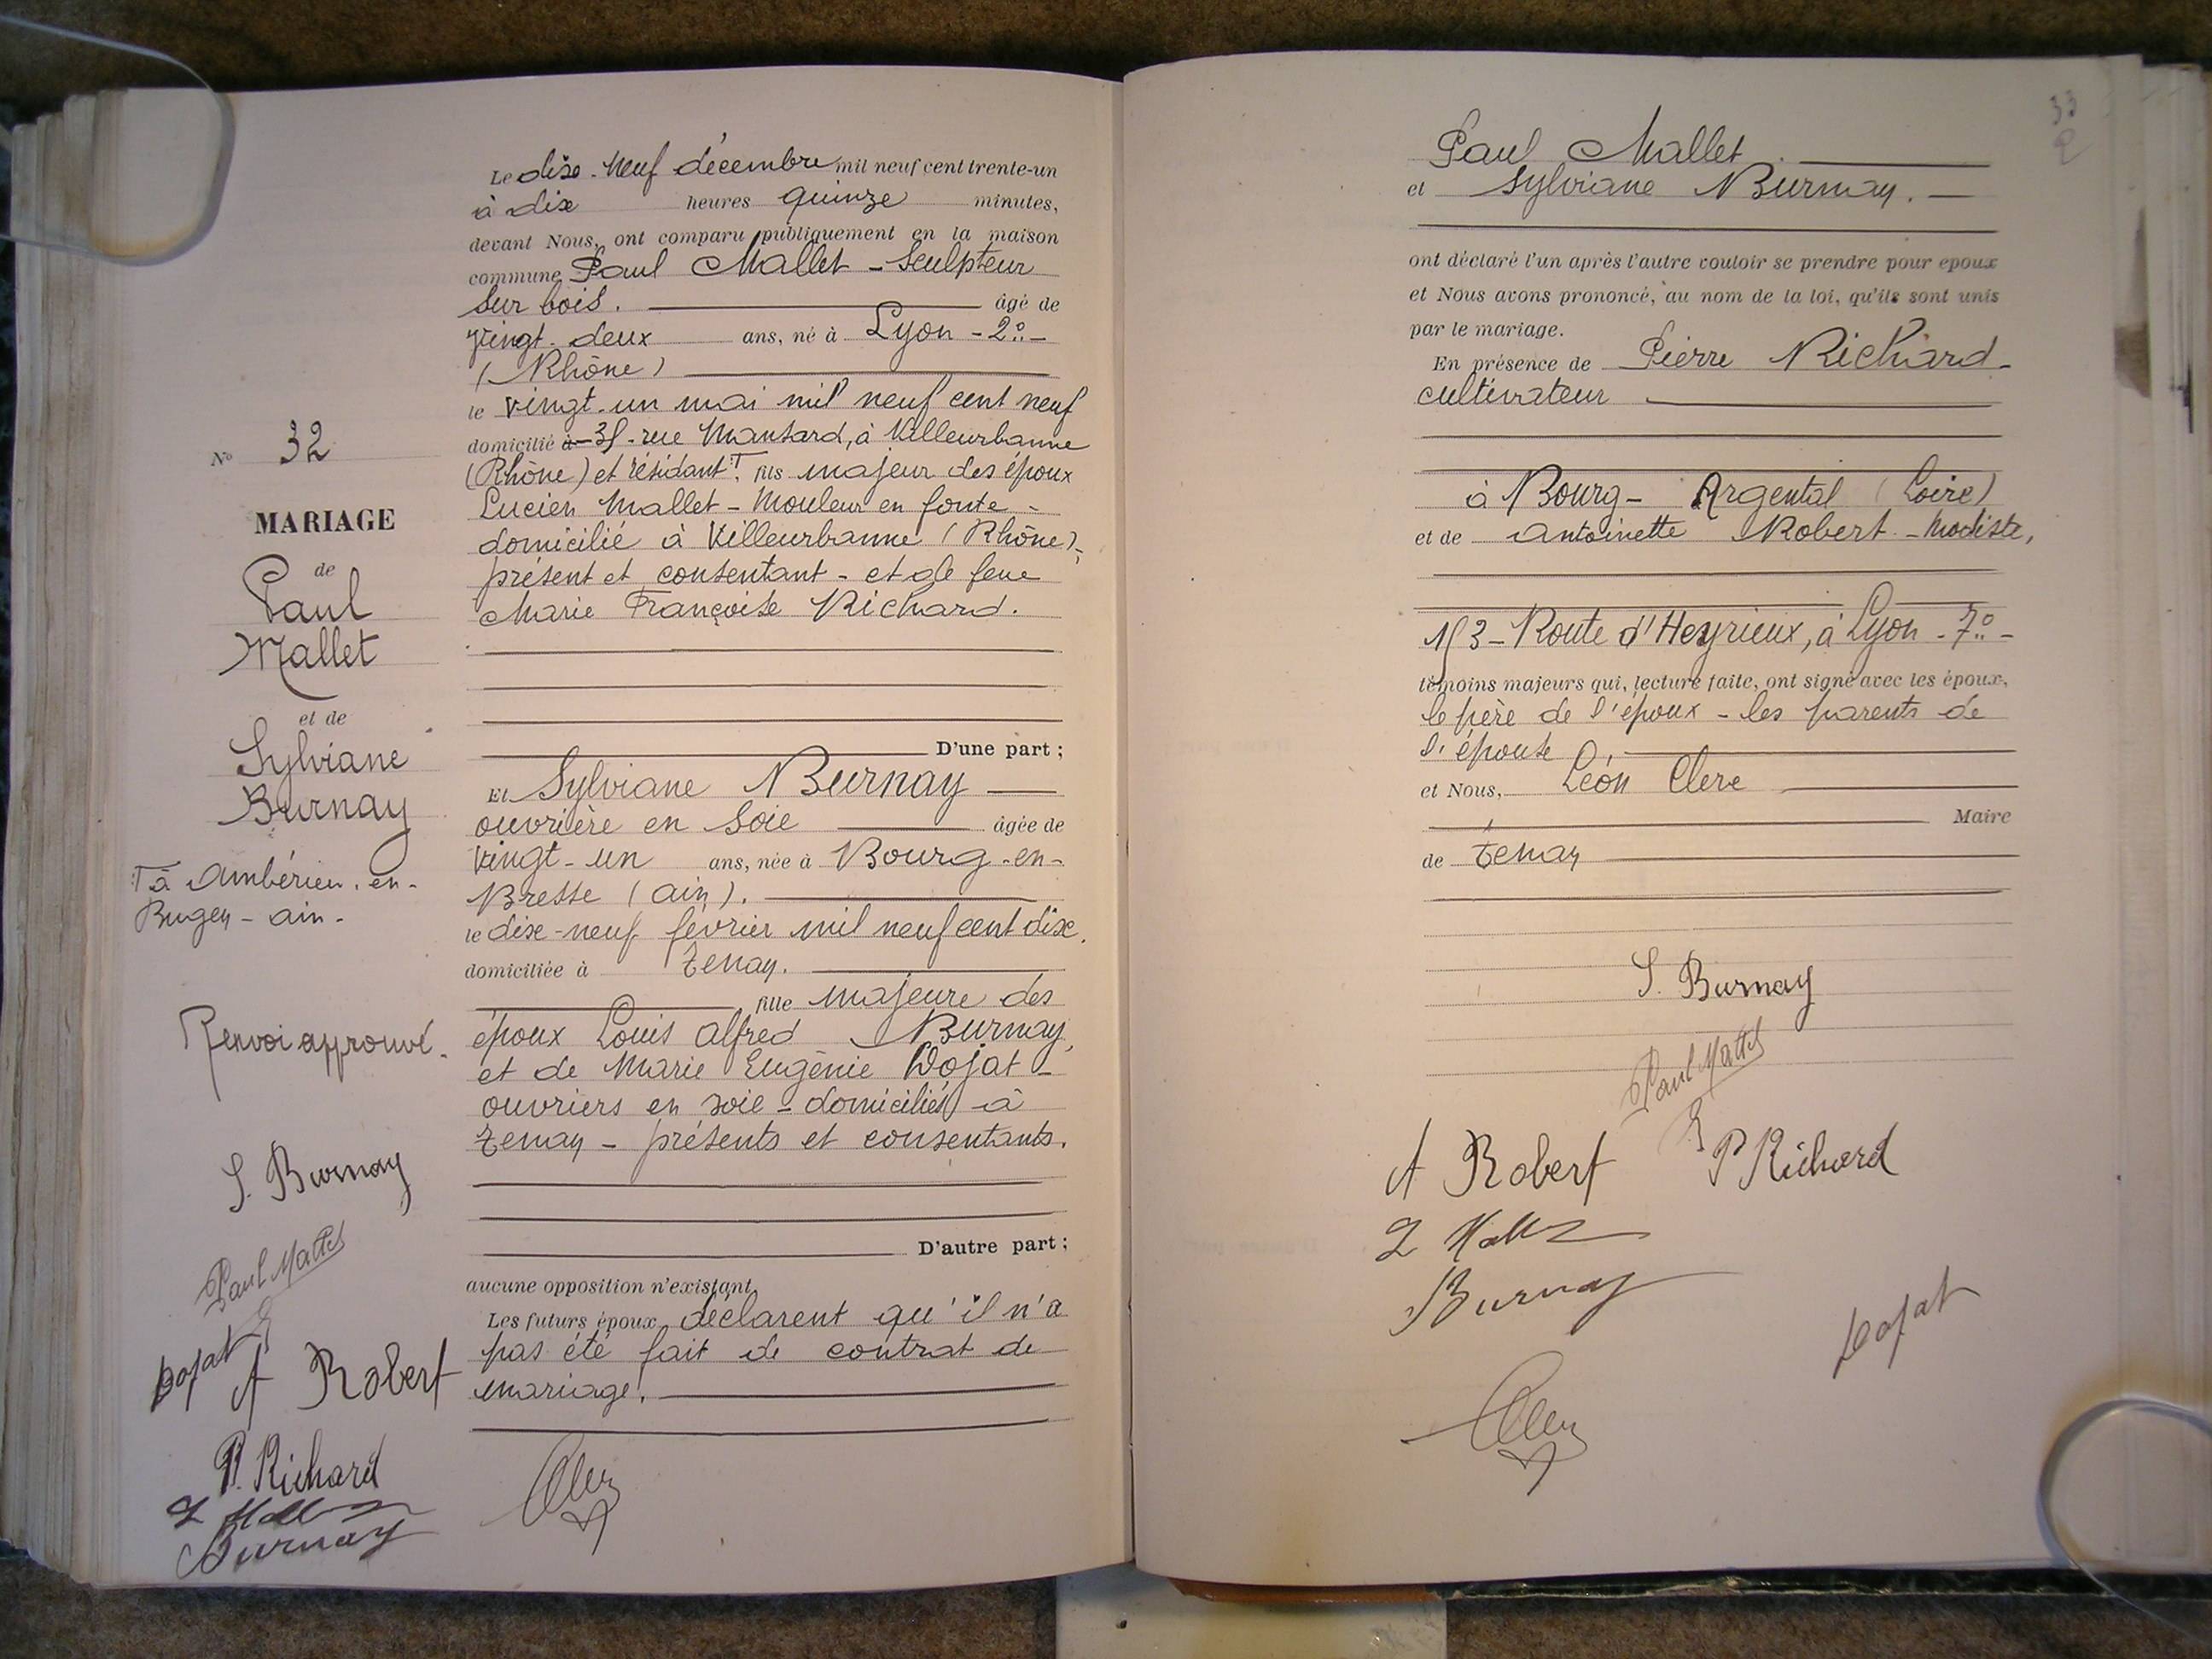 N° 32
MARIAGE
de
Paul
Mallet
et de
Sylviane
Burnay
T à Ambérieu-en-
Bugey - ain -
Renvoi approuvé.
S. Burnay
Paul Mallet
Dojat
A Robert
P. Richard
L Mallet
Burnay
Le dix-neuf décembre mil neuf cent trente-un
à dix heures quinze minutes,
devant Nous, ont comparu publiquement en la maison
commune Paul Mallet - Sculpteur
sur bois. âgé de
vingt-deux ans, né à Lyon - 2° -
(Rhône)
le vingt-un mai mil neuf cent neuf
domicilié à rue Mansard, à Villeurbanne
(Rhône) et résidant T, fils majeur des époux
Lucien Mallet - Mouleur en fonte -
domicilié à Villeurbanne (Rhône) -
présent et consentant - et de feue
Marie Françoise Richard.
D'une part ;
Et Sylviane Burnay
ouvrière en soie âgée de
vingt-un ans, née à Bourg-en-
Bresse (ain).
le dix-neuf février mil neuf cent dix.
domiciliée à Tenay.
fille majeure des
époux Louis Alfred Burnay,
et de Marie Eugénie Dojat -
ouvriers en soie - domiciliés à
Tenay - présents et consentants.
D'autre part ;
aucune opposition n'existant,
Les futurs époux déclarent qu'il n'a
pas été fait de contrat de
mariage.
33
Paul Mallet
et Sylviane Burnay. -
ont déclaré l'un après l'autre vouloir se prendre pour epoux
et Nous avons prononcé, au nom de la loi, qu'ils sont unis
par le mariage.
En présence de Pierre Richard -
cultivateur
à Bourg-Argental (Loire)
et de Antoinette Robert - Modiste,
Route d'Heyrieux, à Lyon - 7° -
témoins majeurs qui, lecture faite, ont signé avec les époux,
le père de l'époux - les parents de
l'épouse,
et Nous, Léon Clerc
Maire
de Tenay
S. Burnay
Paul Mallet
A Robert P Richard
L Mallet
Burnay
Dojat